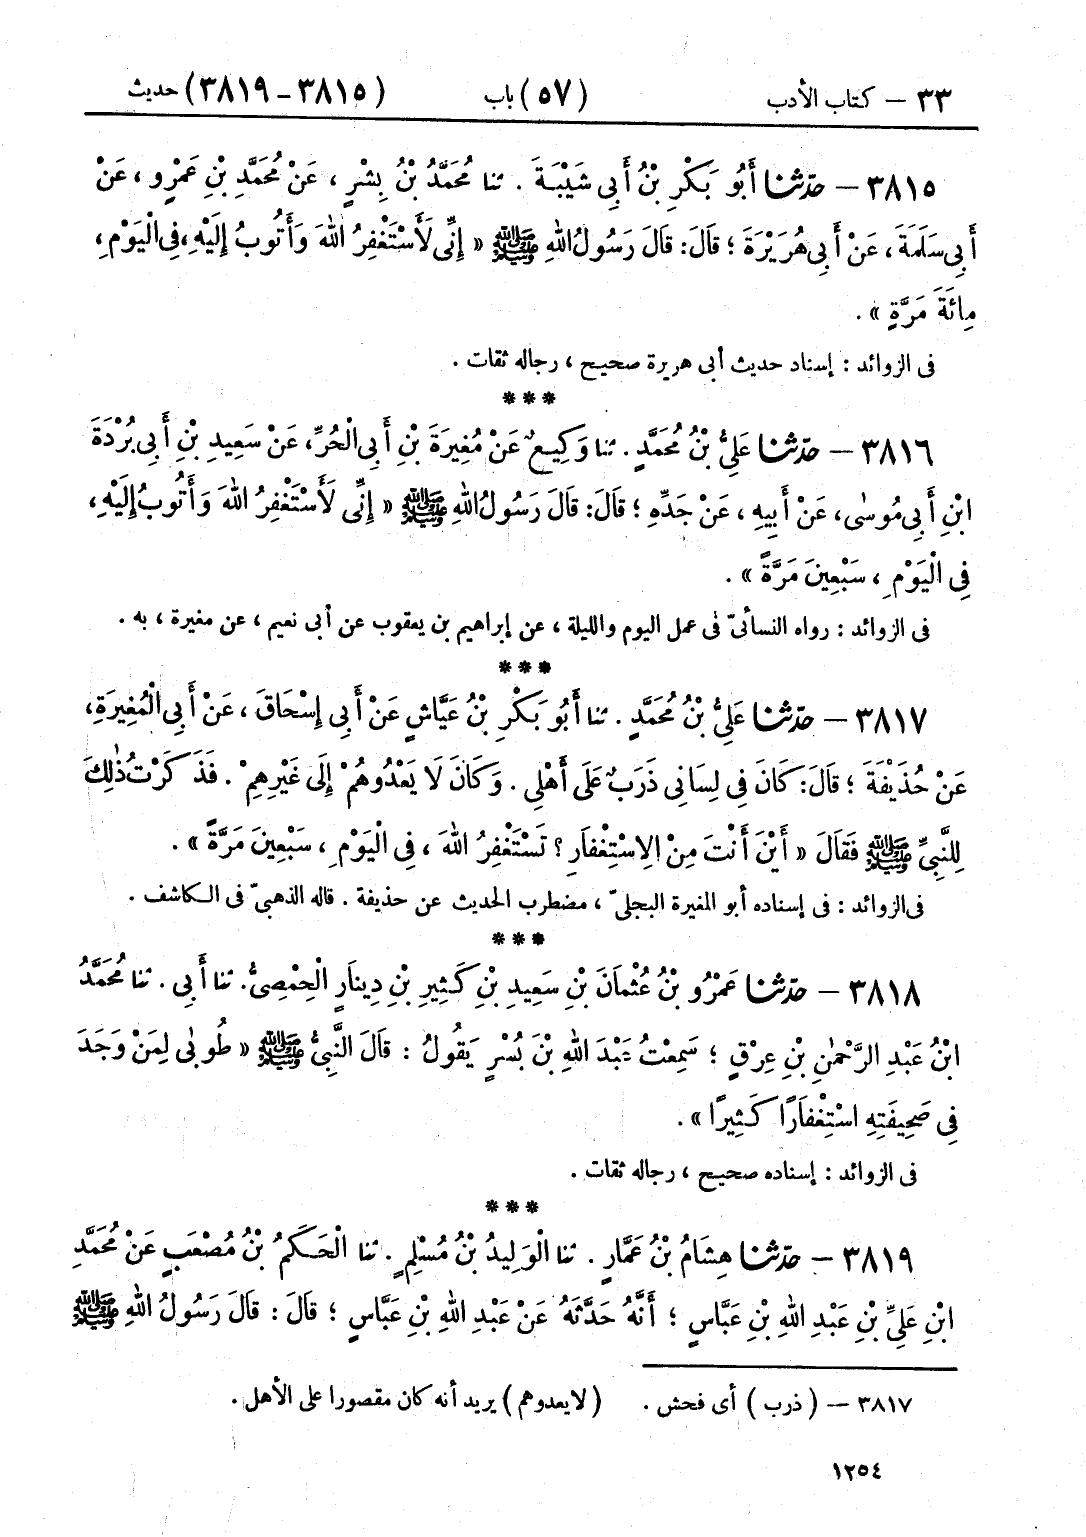 ٣٣ – كتاب الأدب (٥٧) باب (٣٨١٥ – ٣٨١٩) حديث
٣٨١٥ – حدّثنا أَبُو بَكْرِ بْنُ أَبِي شَيْبَةَ . ثنا مُحَمَّدُ بْنُ بِشْرٍ ، عَنْ مُحَمَّدِ بْنِ عَمْرٍو ، عَنْ
أَبِي سَلَمَةَ ، عَنْ أَبِي هُرَيْرَةَ ؛ قَالَ: قَالَ رَسُولُ اللهِ ﷺ « إِنِّي لَأَسْتَغْفِرُ اللهَ وَأَتُوبُ إِلَيْهِ، فِي الْيَوْمِ ،
مِائَةَ مَرَّةٍ » .
فى الزوائد : إسناد حديث أبى هريرة صحيح ، رجاله ثقات .
***
٣٨١٦ – حدّثنا عَلِيُّ بْنُ مُحَمَّدٍ . ثنا وَكِيعٌ عَنْ مُغِيرَةَ بْنِ أَبِي الْحُرِّ، عَنْ سَعِيدِ بْنِ أَبِي بُرْدَةَ
ابْنِ أَبِي مُوسَى، عَنْ أَبِيهِ ، عَنْ جَدِّهِ ؛ قَالَ: قَالَ رَسُولُ اللهِ ﷺ « إِنِّي لَأَسْتَغْفِرُ اللهَ وَأَتُوبُ إِلَيْهِ ،
فِي الْيَوْمِ ، سَبْعِينَ مَرَّةً » .
فى الزوائد : رواه النسائىّ فى عمل اليوم والليلة ، عن إبراهيم بن يعقوب عن أبى نعيم ، عن مغيرة ، به .
***
٣٨١٧ – حدّثنا عَلِيُّ بْنُ مُحَمَّدٍ . ثنا أَبُو بَكْرِ بْنُ عَيَّاشٍ عَنْ أَبِي إِسْحَاقَ ، عَنْ أَبِي الْمُغِيرَةِ ،
عَنْ حُذَيْفَةَ ؛ قَالَ: كَانَ فِي لِسَانِي ذَرَبٌ عَلَى أَهْلِي . وَكَانَ لَا يَعْدُوهُمْ إِلَى غَيْرِهِمْ . فَذَكَرْتُ ذٰلِكَ
لِلنَّبِيِّ ﷺ فَقَالَ « أَيْنَ أَنْتَ مِنْ الِاسْتِغْفَارِ ؟ تَسْتَغْفِرُ اللهَ ، فِي الْيَوْمِ ، سَبْعِينَ مَرَّةً » .
فى الزوائد : فى إسناده أبو المغيرة البجلىّ ، مضطرب الحديث عن حذيفة . قاله الذهبىّ فى الكاشف .
***
٣٨١٨ – حدّثنا عَمْرُو بْنُ عُثْمَانَ بْنِ سَعِيدِ بْنِ كَثِيرِ بْنِ دِينَارٍ الْحِمْصِيُّ. ثنا أَبِي . ثنا مُحَمَّدُ
ابْنُ عَبْدِ الرَّحْمٰنِ بْنِ عِرْقٍ ؛ سَمِعْتُ عَبْدَ اللهِ بْنَ بُسْرٍ يَقُولُ : قَالَ النَّبِيُّ ﷺ « طُوبَى لِمَنْ وَجَدَ
فِي صَحِيفَتِهِ اسْتِغْفَارًا كَثِيرًا » .
فى الزوائد : إسناده صحيح ، رجاله ثقات .
***
٣٨١٩ – حدّثنا هِشَامُ بْنُ عَمَّارٍ . ثنا الْوَلِيدُ بْنُ مُسْلِمٍ . ثنا الْحَكَمُ بْنُ مُصْعَبٍ عَنْ مُحَمَّدِ
ابْنِ عَلِيِّ بْنِ عَبْدِ اللهِ بْنِ عَبَّاسٍ ؛ أَنَّهُ حَدَّثَهُ عَنْ عَبْدِ اللهِ بْنِ عَبَّاسٍ ؛ قَالَ : قَالَ رَسُولُ اللهِ ﷺ
٣٨١٧ – ( ذرب ) أى فحش . ( لايعدوهم ) يريد أنه كان مقصورا على الأهل .
١٢٥٤